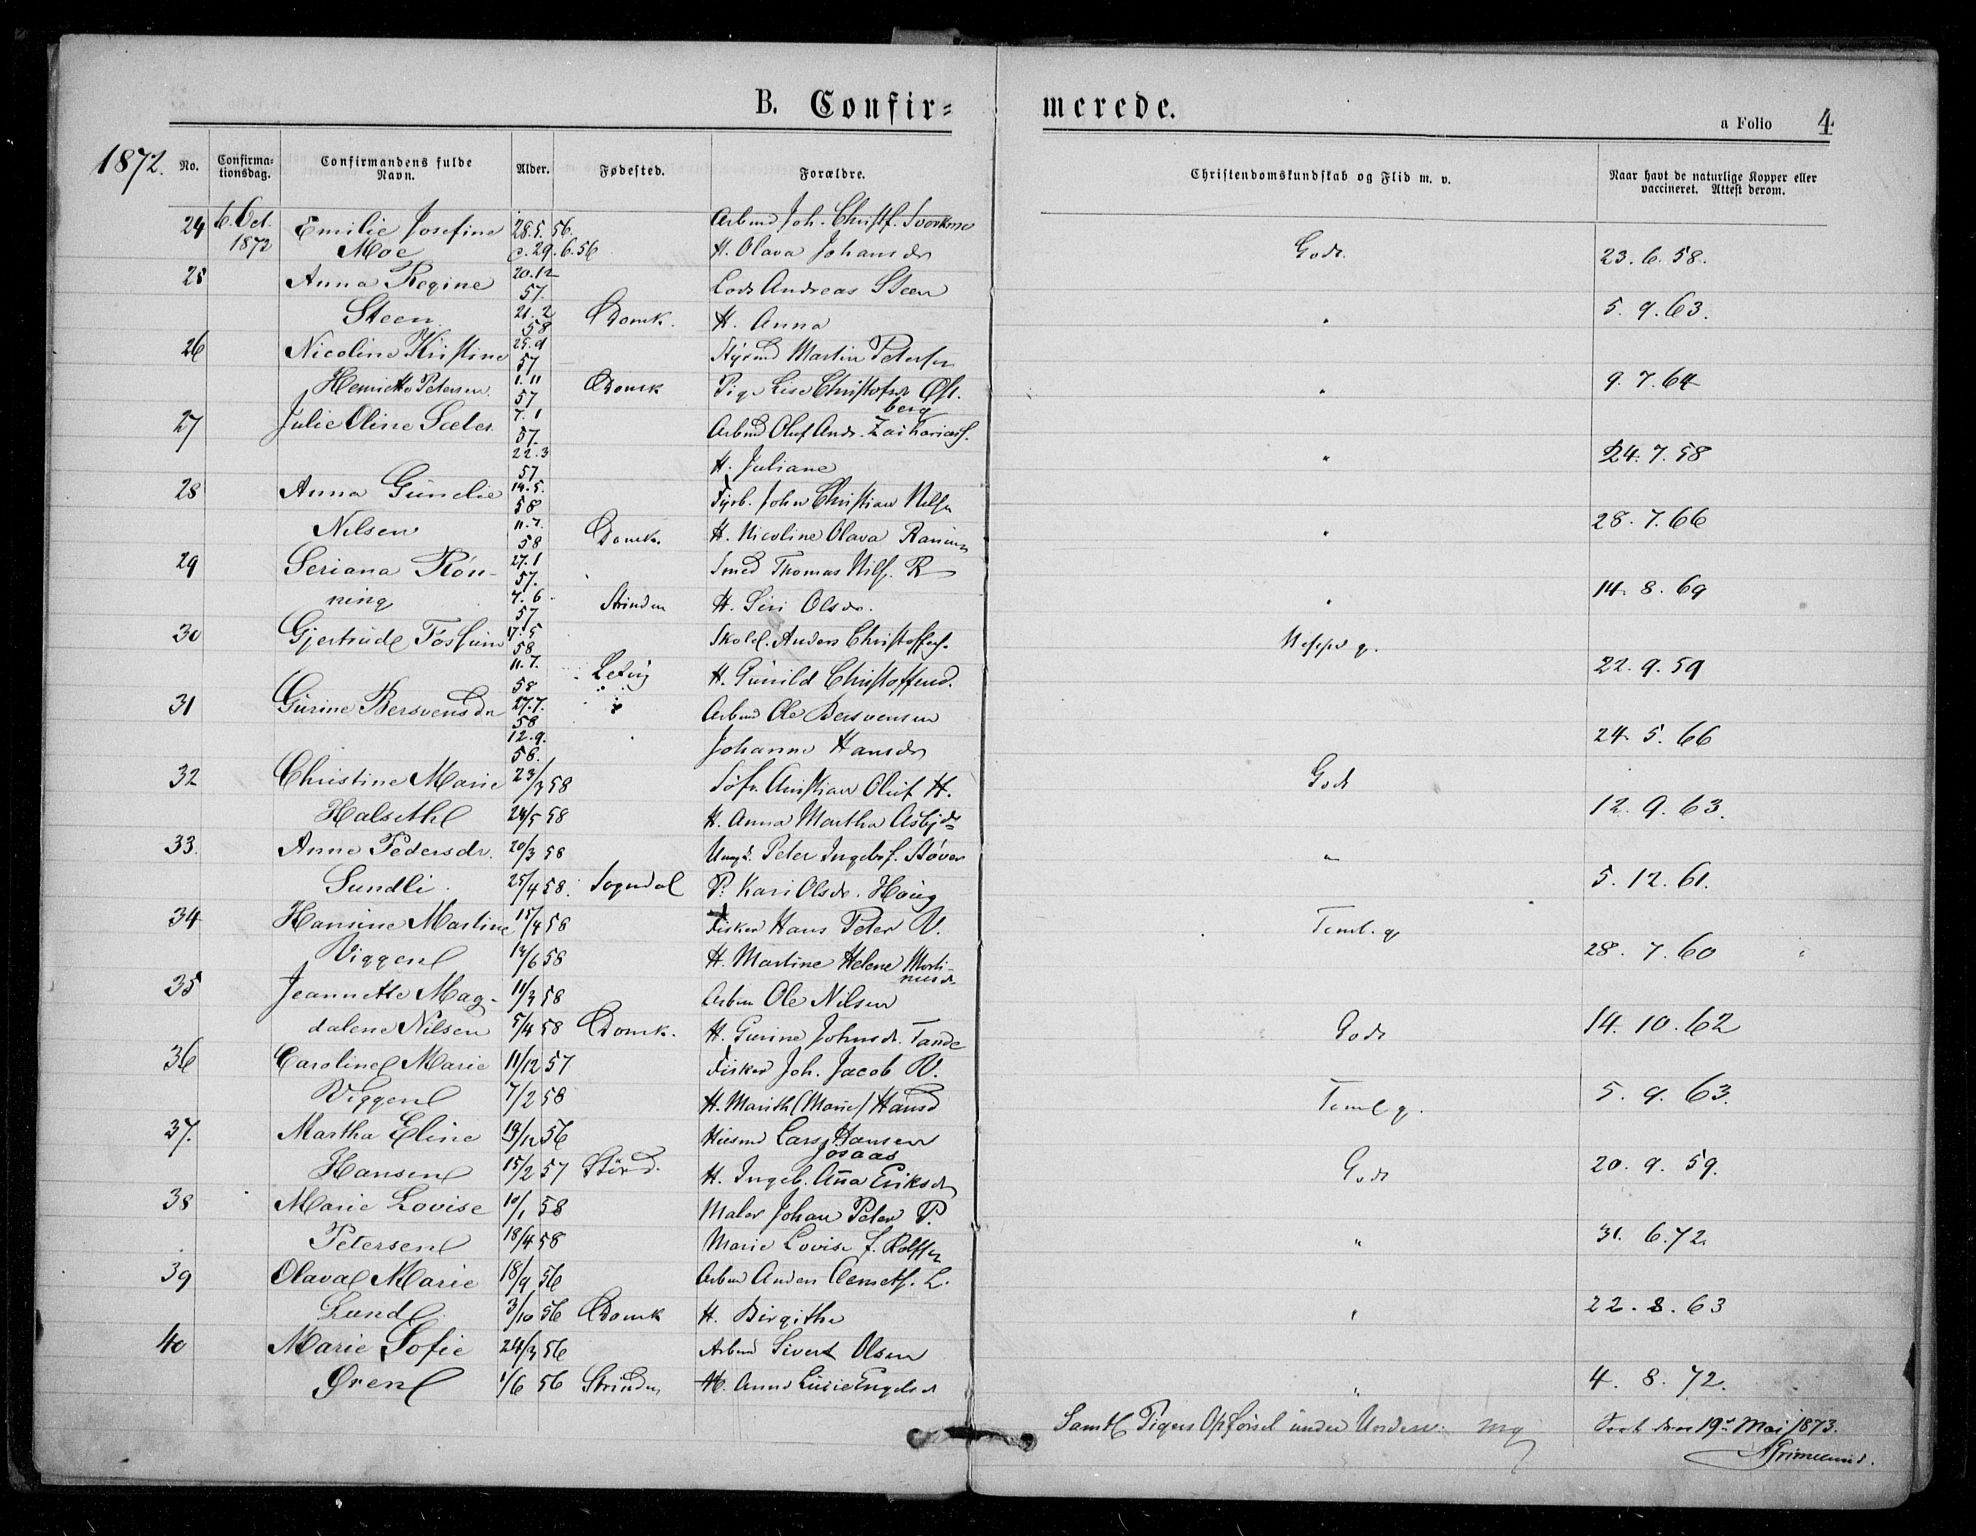 B. Confir=
merede.
a Folio 4
1872.
No. Confirma= tionsdag. Confirmandens fulde Navn. Alder. Fødested. Forældre. Christendomskundskab og Flid m. v. Naar havt de naturlige Kopper eller vaccineret. Attest derom.
24 6 Oct. Emilie Josefine 28.5.56. Arbmd Joh. Christf.
1872 Moe 29.6.56 H. Olava Johansdr God. 23.6.58.
25 Anna Regine 20.12 57. Lods Andreas Steen
Steen 21.2 58 Domk. H. Anna " 5.9.63.
26 Nicoline Kristine 57 Styrmd Martin Petersen
Henriette Petersen 1.11 57 Domk Pige Lise Christofsdr Øst.berg " 9.7.64
27 Julie Oline 7.1 57. Arbmd Oluf Andr. Zachariasf.
22.3 57 H. Juliane " 24.7.58
28 Anna Gunelie 14.5. 58 John Christian Nilsen
Nilsen 11.7. 58 Domk. H. Nicoline Olava " 28.7.66
29 Seriana Røn- 27.1 57. Smed Thomas Nilsf. R
ning 7.6 57 Strinden H. Siri Olsdr. " 14.8.69
30 Gjertrude Fossum 17.5 58 Skolel. Anders Christoffersf.
11.7. 58 H. Gunild Christoffersd. g. 22.9.59
31 Gurine Bersvensdr 27.7. 58 Arbmd Ole Bersvensen
12.9. 58. Johanna Hansdr 24.5.66
32 Christine Marie 23/3 58 Christian Oluf H. Godt
Halseth 24/5 58 H. Anna Martha 12.9.63.
33. Anne Pedersdr. 20/3 58 Ungk. Peter Ingebr.f. Støver "
Sundli. 25/4 58. Sogndal P. Kari Olsdr. Haug 5.12.61.
34 Hansine Martine 15/4 58 Fisker Hans Peter V. Teml. g
Viggen 14/6 58 H. Martine Helene Morti-nusdr 28.7.60
35 Jeannette Mag- 11/3 58 Arbm Ole Nilsen
dalene Nilsen 5/4 58 Domk. H. Gurine Johnsdr. Tande Godt 14.10.62
36 Caroline Marie 11/12 57 Fisker Joh. Jacob V.
Viggen 7/2 58 H. Marith (Marie) Hansd Teml g. 5.9.63.
37. Martha Eline 19/12 56 Lars Hansen
Josaas
Hansen 15/2 57 Størd. H. Ingeb. Anna Eriksdr Godt 20.9.59.
38 Marie Lovise 10/1 58 Maler Johan Peter P.
Petersen 18/4 58 Marie Lovise f. Rolfsen " 31.6.72.
39 Olava Marie 18/9 56 Arbmd Anders L.
Lund 3/10 56 Domk H. Birgitha " 22.8.63
40 Marie Sofie 24/3 56 Arbmd Sivert Olsen
Øren 1/6 56 Strinden H. Anne Lucie Engelsdr " 4.8.72.
Samtl Pigers Opførsel under Underv. mg
Seet den 19de Mai 1873.
AGrimelund.